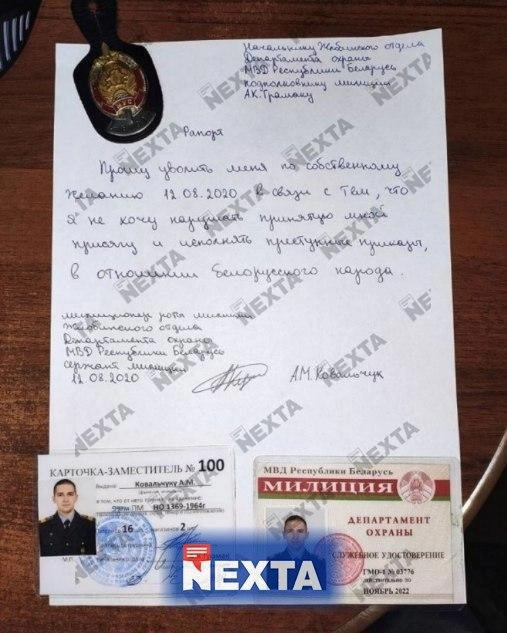 Начальнику Жабинского отдела
Департамента охраны
МВД Республики Беларусь
подполковнику милиции
А.К.
Рапорт
Прошу уволить меня по собственному
желанию 12.08.2020 в связи с тем, что
я не хочу нарушать принятую мной
присягу и исполнять преступные приказы,
в отношении белорусского народа.
милиционер роты милиции
Жабинского отдела
Департамента охраны
МВД Республики Беларусь
сержант милиции
12.08.2020
А.М. Ковальчук
КАРТОЧКА-ЗАМЕСТИТЕЛЬ № 100
Выдана Ковальчуку А.М.
ПМ НО 1369-1964г
16 2
МВД Республики Беларусь
МИЛИЦИЯ
ДЕПАРТАМЕНТ
ОХРАНЫ
СЛУЖЕБНОЕ УДОСТОВЕРЕНИЕ
ГМО-1 № 03776
ДЕЙСТВИТЕЛЬНО ПО
НОЯБРЬ 2022
NEXTA